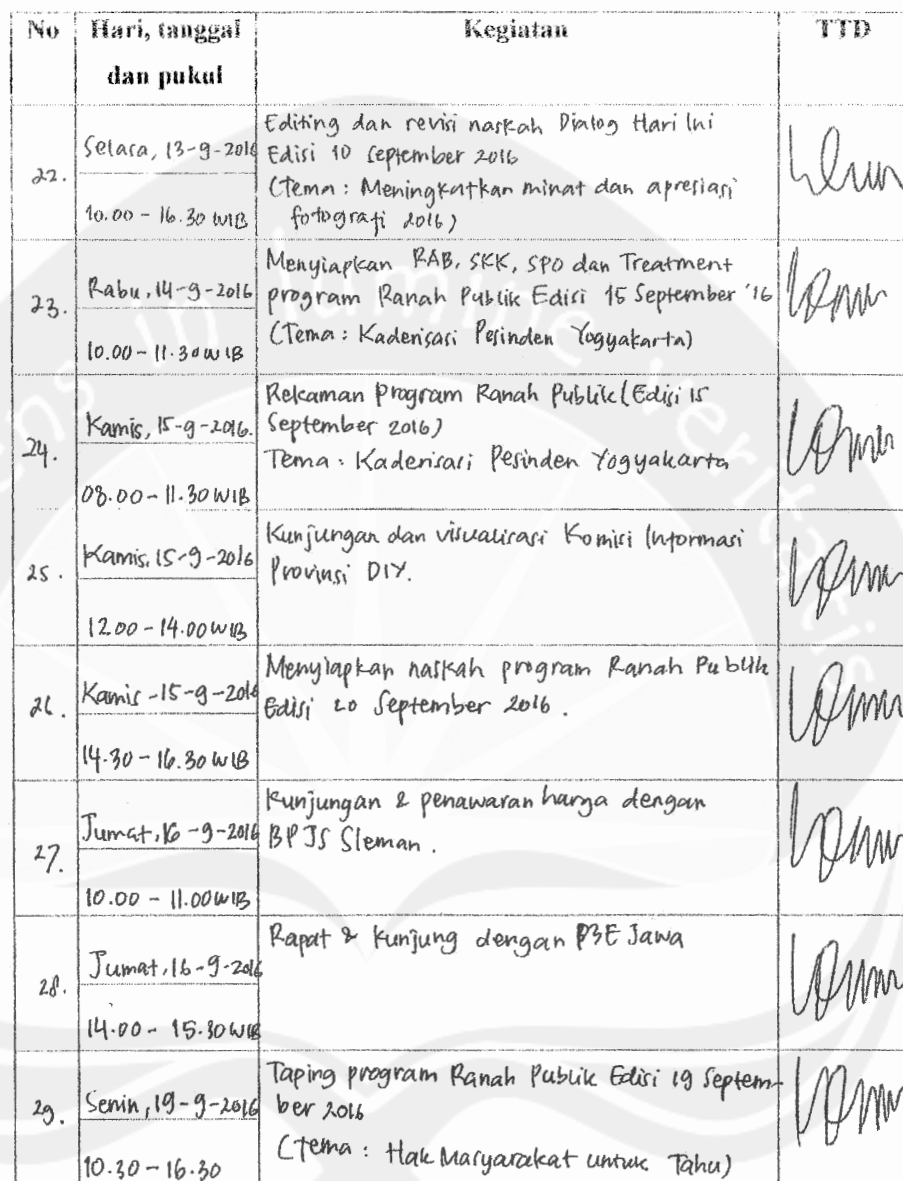 No Hari, tanggal dan pukul Kegiatan TTD
22. Selasa, 13-9-2016
10.00 - 16.30 WIB
Editing dan revisi naskah Dialog Hari Ini
Edisi 10 September 2016
(Tema : Meningkatkan minat dan apresiasi
fotografi 2016)
23. Rabu, 14-9-2016
10.00 - 11.30 WIB
Menyiapkan RAB, SKK, SPO dan Treatment
program Ranah Publik Edisi 15 September '16
(Tema : Kaderisasi Pesinden Yogyakarta)
24. Kamis, 15-9-2016.
08.00 - 11.30 WIB
Rekaman Program Ranah Publik (Edisi 15
September 2016)
Tema : Kaderisasi Pesinden Yogyakarta
25. Kamis, 15-9-2016
12.00 - 14.00 WIB
Kunjungan dan visualisasi Komisi Informasi
Provinsi DIY.
26. Kamis -15-9-2016
14.30 - 16.30 WIB
Menyiapkan naskah program Ranah Publik
Edisi 20 September 2016.
27. Jumat, 16-9-2016
10.00 - 11.00 WIB
Kunjungan & penawaran harga dengan
BPJS Sleman.
28. Jumat, 16-9-2016
14.00 - 15.30 WIB
Rapat & kunjung dengan P3E Jawa
29. Senin, 19-9-2016
10.30 - 16.30
Taping program Ranah Publik Edisi 19 Septem-
ber 2016
(Tema : Hak Masyarakat untuk Tahu)
in lumine veritatis